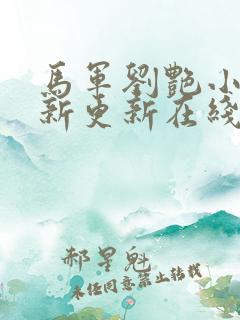 馬軍劉艷小
新更新在綫
郝星魁
未經同意禁止轉載